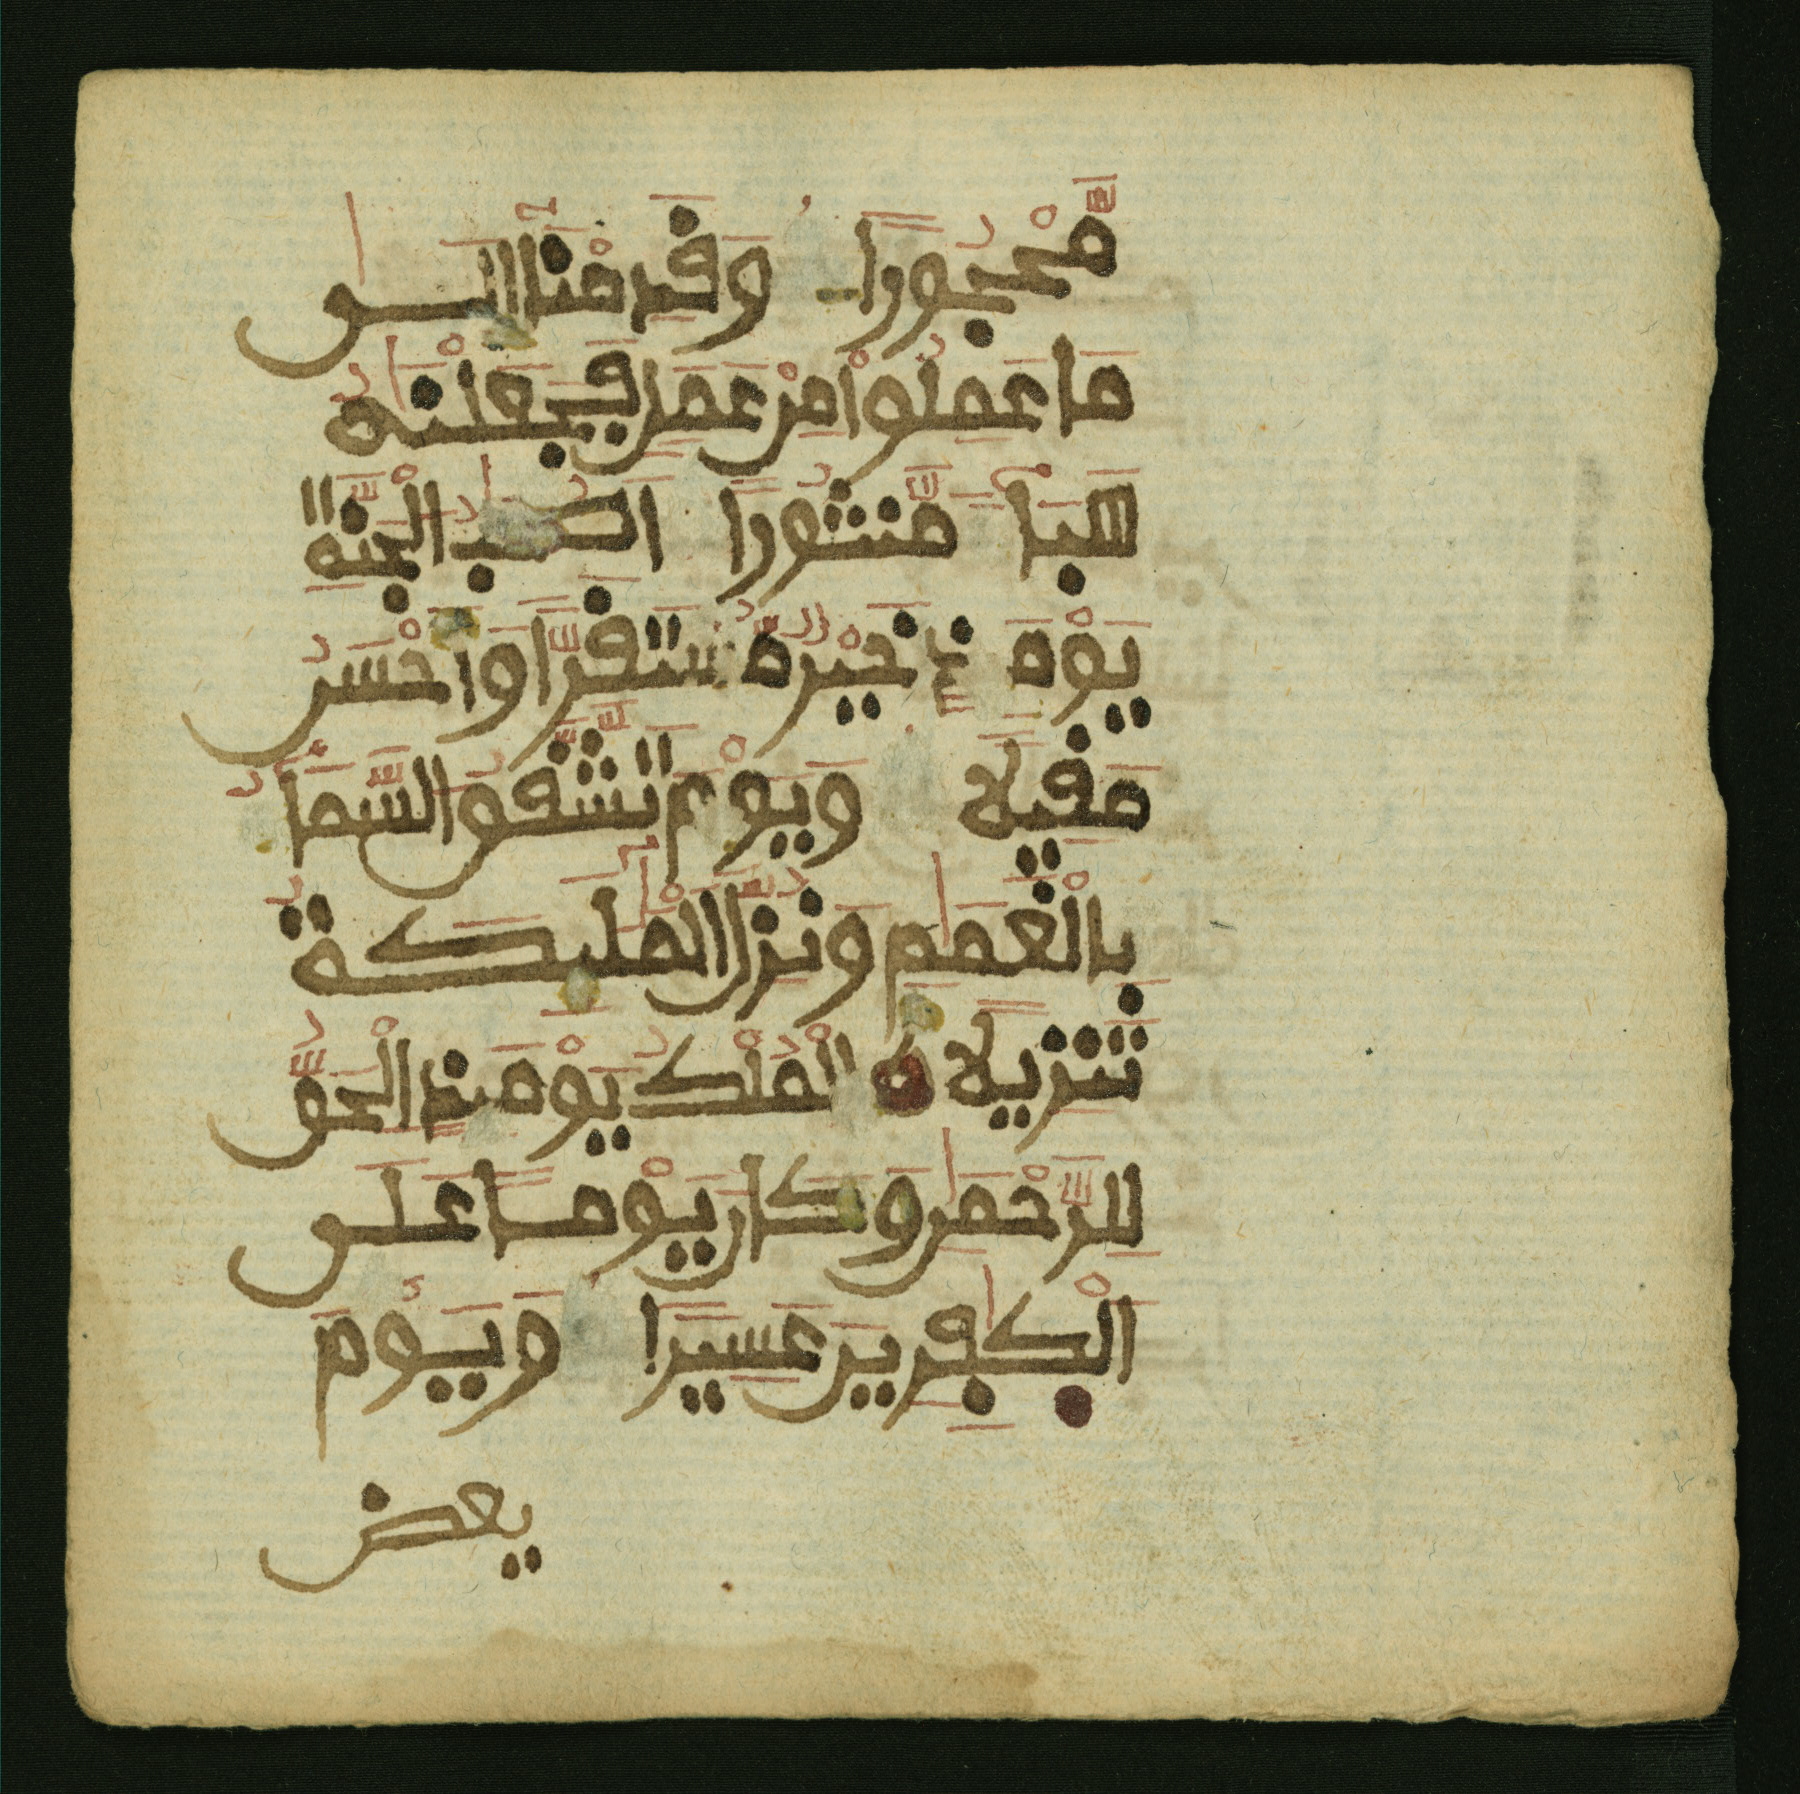 مَّحْجُورًا وَقَدِمْنَآ إلَىٰ
مَا عَمِلُوا مِنْ عَمَلٍ فَجَعَلْنَٰهُ
هَبَآءً مَّنثُورًا اصْحَٰبُ الْجَنَّةِ
يَوْمَئِذٍ خَيْرٌ مُّسْتَقَرًّا وَأَحْسَنُ
مَقِيلًا وَيَوْمَ تَشَّقَّقُ السَّمَآءُ
بِالْغَمَٰمِ وَنُزِّلَ الْمَلَٰٓئِكَةُ
تَنزِيلًا الْمُلْكُ يَوْمَئِذٍ الْحَقُّ
لِلرَّحْمَٰنِ وَكَانَ يَوْمًا عَلَى
الْكَٰفِرِينَ عَسِيرًا وَيَوْمَ
يعض